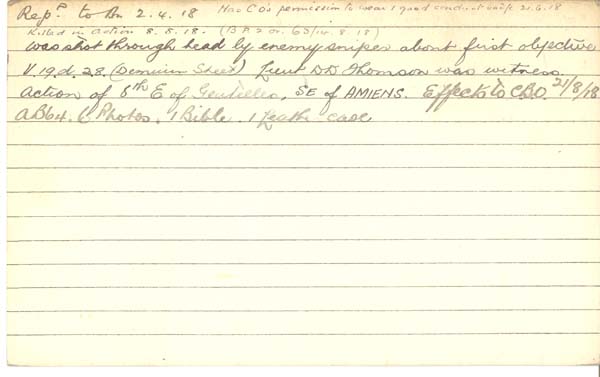 Repd. to Bn 2.4.18 Has C O's permission to wear 1 good conduct 21.6.18
Killed in action 8.8.18. (B.P. 2 or. 63/14.8.18)
was shot through head by enemy sniper about first objective
V.19.d.28. (Demuin Sheet) Lieut D.D. Thomson was witness.
Action of 8th E of SE of AMIENS. Effects to CBO. 21/8/18
AB64. Photos. 1 Bible. 1 Leathr case